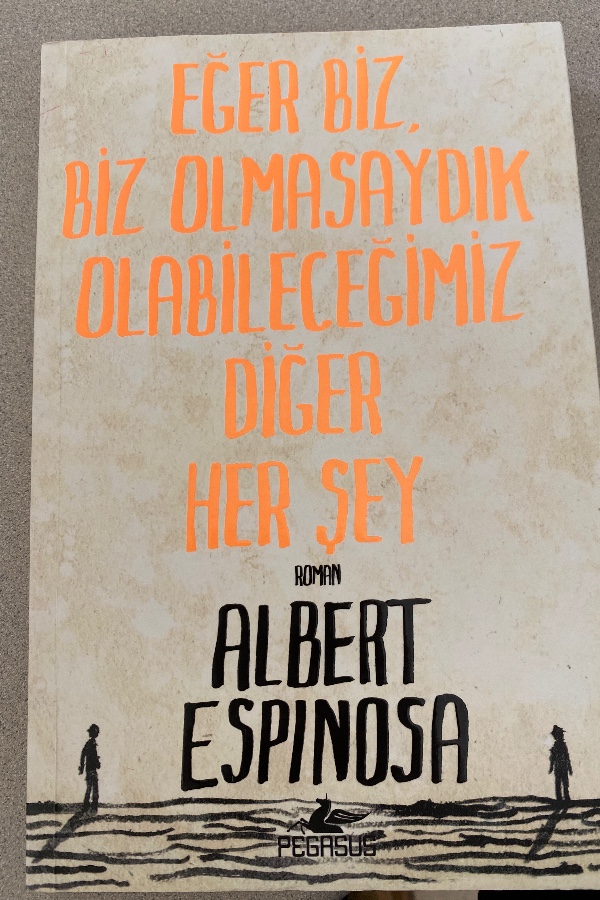 EĞER BİZ,
BİZ OLMASAYDIK
OLABİLECEĞİMİZ
DİĞER
HER ŞEY
ROMAN
ALBERT
ESPINOSA
PEGASUS